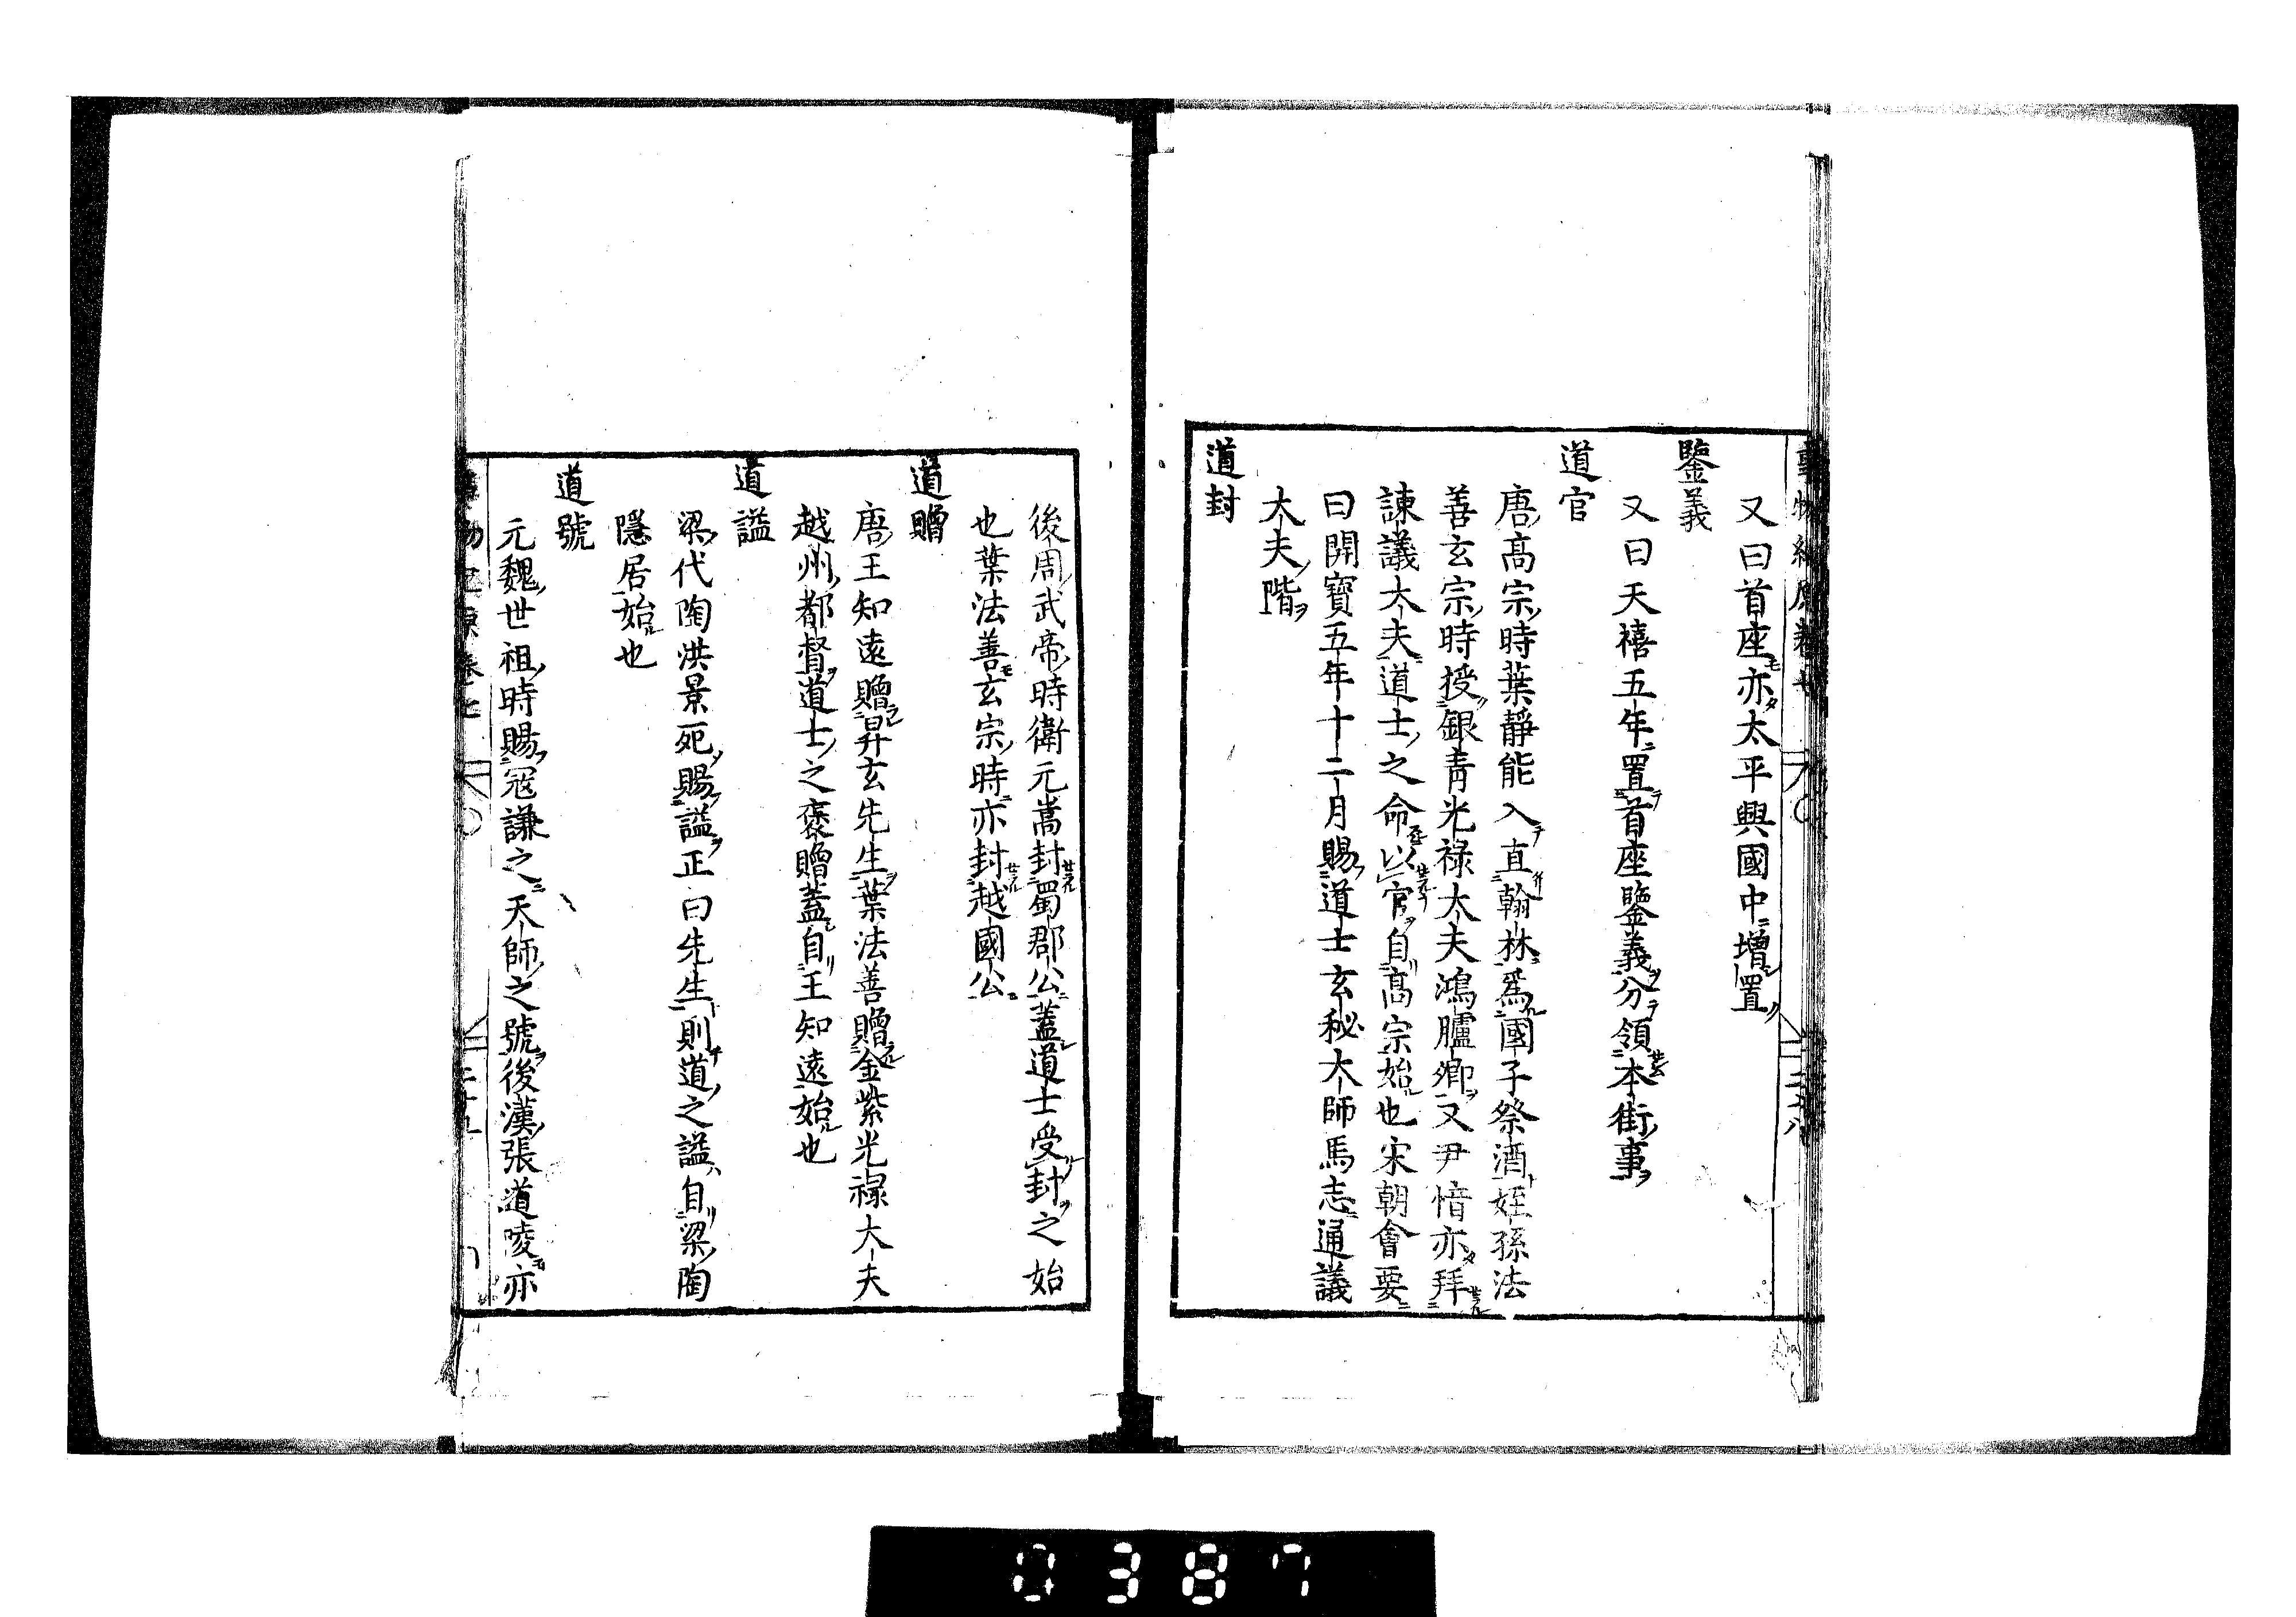 又曰首座亦太平興國中增置
鑒義
又曰天禧五年置首座鑒義分領本街事
道官
唐高宗時葉靜能入直翰林爲國子祭酒姪孫法
善玄宗時授銀青光祿大夫鴻臚卿又尹愔亦拜
諫議大夫道士之命以官自高宗始也宋朝會要
曰開寶五年十二月賜道士玄秘大師馬志通議
大夫階
道封
後周武帝時衛元嵩封蜀郡公蓋道士受封之始
也葉法善玄宗時亦封越國公
道贈
唐王知遠贈昇玄先生葉法善贈金紫光祿大夫
越州都督道士之褒贈蓋自王知遠始也
道謚
梁代陶洪景死賜謚正曰先生則道之謚自梁陶
隱居始也
道號
元魏世祖時賜寇謙之天師之號後漢張道陵亦
0387